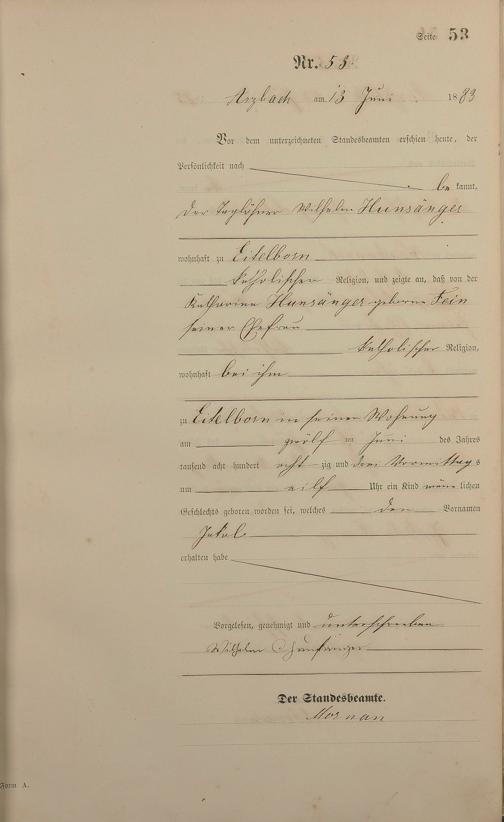 Seite 53
Nr. 53.
Arzbach am 13 Juni 1883
Vor dem unterzeichneten Standesbeamten erschien heute, der
Persönlichkeit nach
be kannt,
der Taglöhner Wilhelm Hunsänger
wohnhaft zu Eitelborn
katholischer Religion, und zeigte an, daß von der
Katharina Hunsänger geborne Fein
seiner Ehefrau
katholischer Religion,
wohnhaft bei ihm
zu Eitelborn in seiner Wohnung
am zwölf ten Juni des Jahres
tausend acht hundert acht zig und drei Vormittag s
um eilf Uhr ein Kind männ lichen
Geschlechts geboren worden sei, welches den Vornamen
Jakob
erhalten habe
Vorgelesen, genehmigt und unterschrieben
Wilhelm Hunsänger
Der Standesbeamte.
Form A.